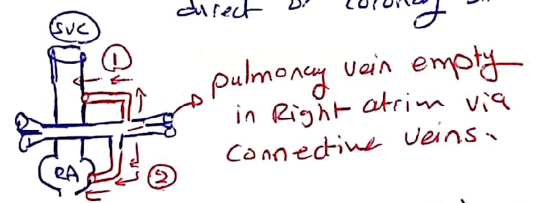 direct or coronary
SVC
①
pulmonary vein empty
in Right atrim via
connective veins.
RA
②